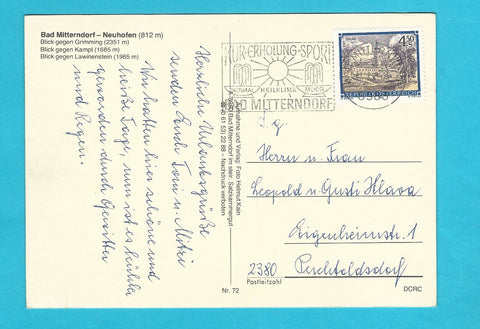 Bad Mitterndorf – Neuhofen (812 m)
Blick gegen Grimming (2351 m)
Blick gegen Kampl (1685 m)
Blick gegen Lawinenstein (1965 m)
Herzliche Urlaubsgrüße
senden Euch Toni u. Mitzi
Wir hatten hier schöne und
heiße Tage, nun ist es kühler
geworden durch Gewitter
und Regen.
Aufnahme und Verlag: Foto Helmut Kain
8983 Bad Mitterndorf im steir. Salzkammergut
Nachdruck verboten
KUR·ERHOLUNG·SPORT
HEILKLIMA
MOOR
BAD MITTERNDORF
8983
4.50
REPUBLIK ÖSTERREICH
S.g.
Herrn u. Frau
Leopold u. Gusti Hlava
Eigenheimstr. 1
2380 Perchtoldsdorf
Postleitzahl
Nr. 72
DCRC